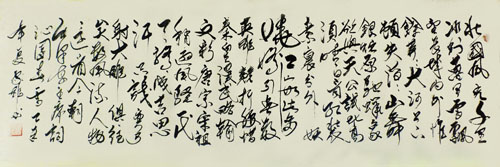 北國風光千里
冰封万里雪飄
望长城内外惟
餘莽莽大河上下
頓失滔滔山舞
銀蛇原馳蜡象
欲與天公試比高
須晴日看红装
素裹分外妖
娆江山如此多
嬌引無數
英雄競折腰惜
秦皇漢武略輸
文彩唐宗宋祖
稍遜風騷一代
天驕成吉思
汗只識彎弓
射大雕俱往
矣數風流人物
還看今朝
毛主席詞
沁園春雪
年夏 書